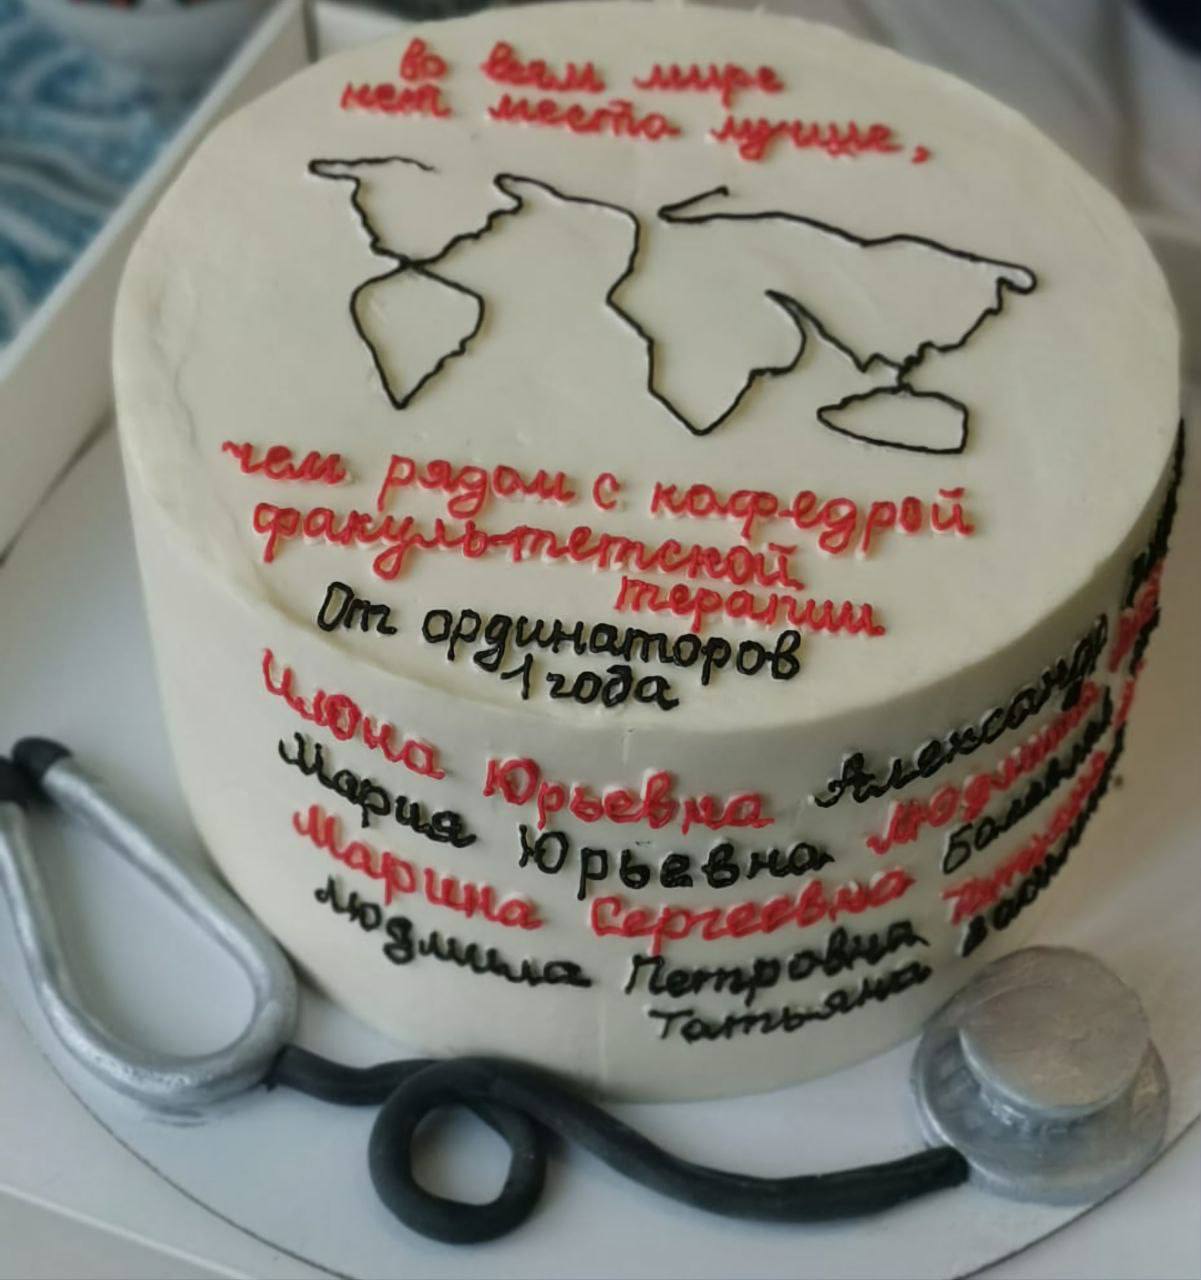 во всем мире
нет места лучше,
чем рядом с кафедрой
факультетской
терапии
От ординаторов
1 года
Илона Юрьевна Александр
Мария Юрьевна Людмила
Марина Сергеевна
Людмила Петровна
Татьяна